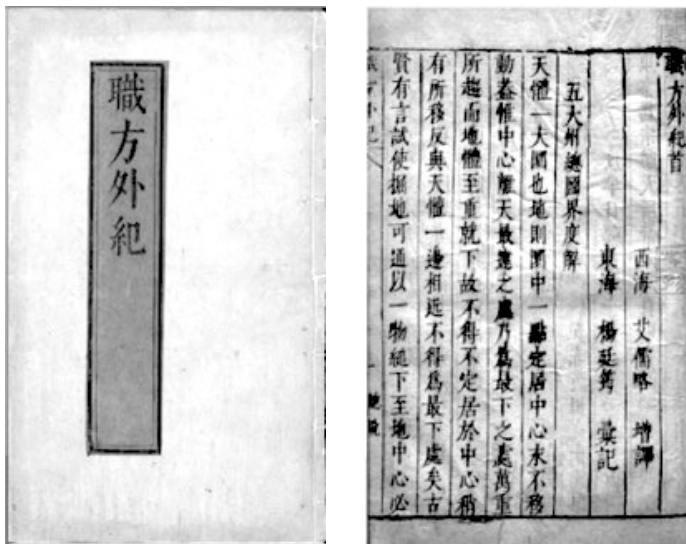 職方外紀
職方外紀首
西海 艾儒略 增譯
東海 楊廷筠 彙記
五大州總圖界度解
天體一大圜也地則圜中一點定居中心永不移
動葢惟中心離天最遠之處乃為最下之處萬重
所趨而地體至重就下故不得不定居於中心稍
有所移反與天體一邊相近不得為最下處矣古
賢有言試使掘地可通以一物縋下至地中心必